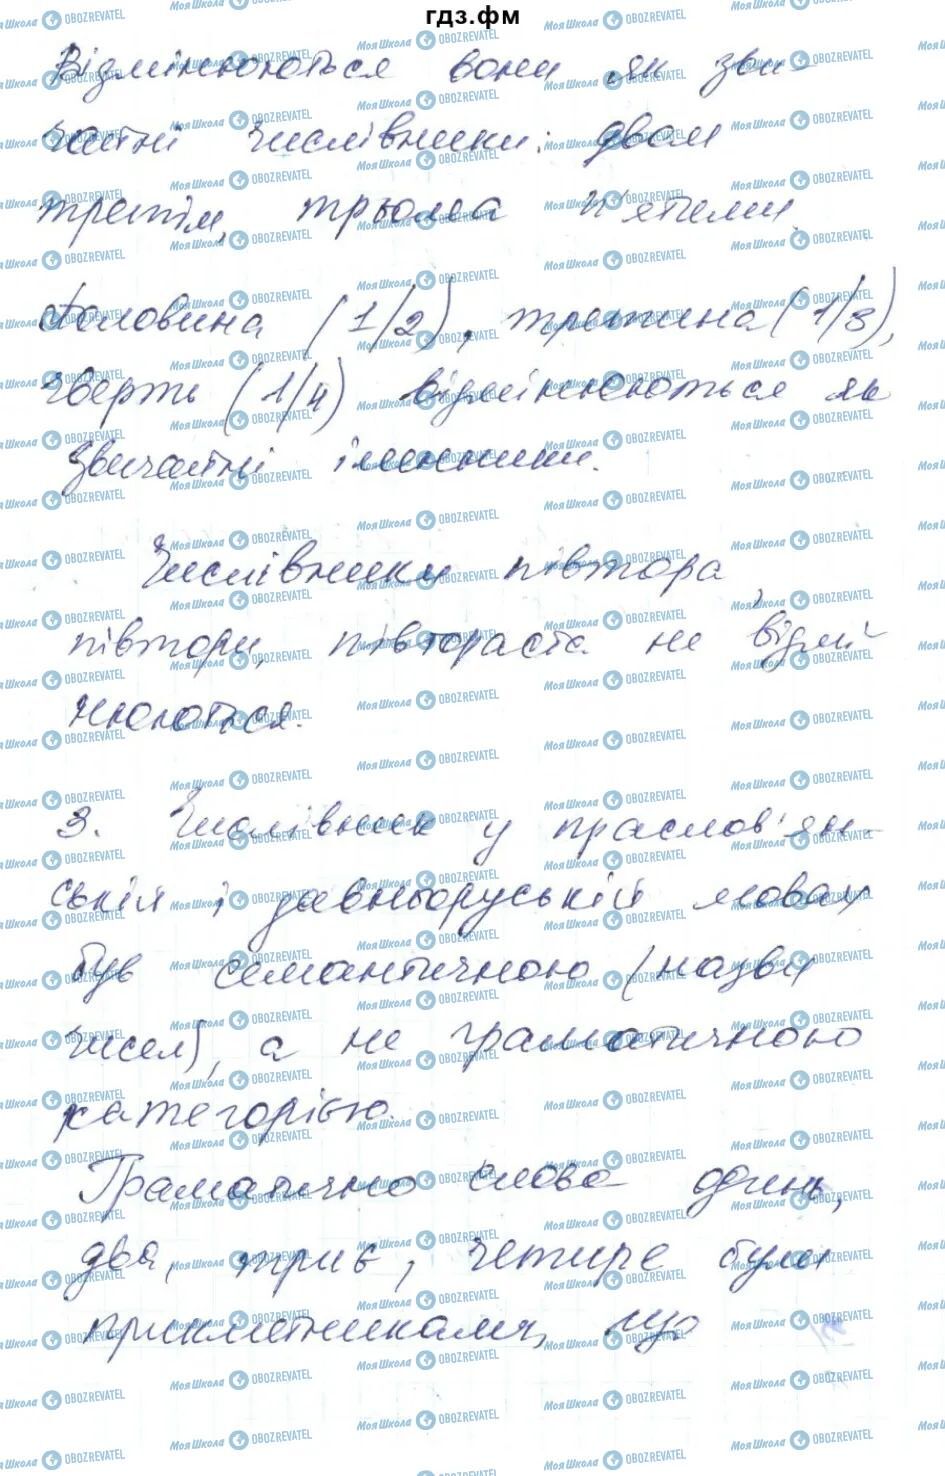 гдз.фм
Відмінюються вони як зви-
чайні числівники: двом
третім, трьома п'ятими.
Половина (1/2), третина (1/3),
чверть (1/4) відмінюються як
звичайні іменники.
Числівники півтора,
півтори, півтораста не відмі-
нюються.
3. Числівник у праслов'ян-
ській і давньоруській мовах
був семантичною (назви
чисел), а не граматичною
категорією.
Граматично слова одинъ,
два, трие, четире були
прикметниками, що